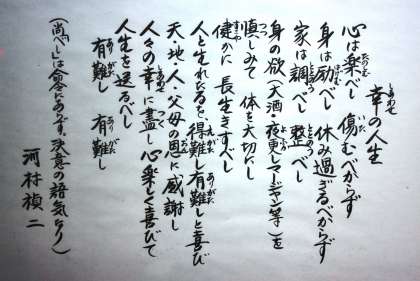 幸の人生
心は楽べし 傷むべからず
身は励べし 休み過ぎるべからず
家は調べし 整べし
身の欲(大酒・夜更し・マージャン等)を
慎しみて 体を大切にし
健かに 長生きすべし
人と生れたるを、得難し有難しと喜び
天・地・人・父母の恩に感謝し
人々の幸に盡し 心楽しく喜びて
人生を送るべし
有難し 有難し
(尚「べし」は命令にあらず、決意の語気なり)
河村禎二